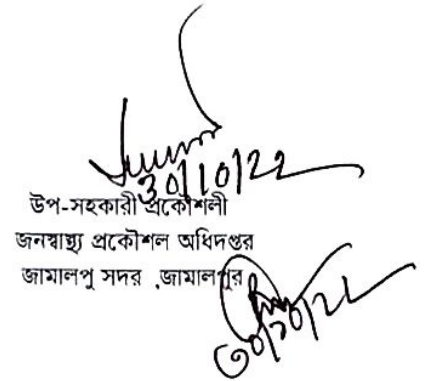 30/10/22
উপ-সহকারী প্রকৌশলী
জনস্বাস্থ্য প্রকৌশল অধিদপ্তর
জামালপু সদর ,জামালপুর
৩০/১০/২২